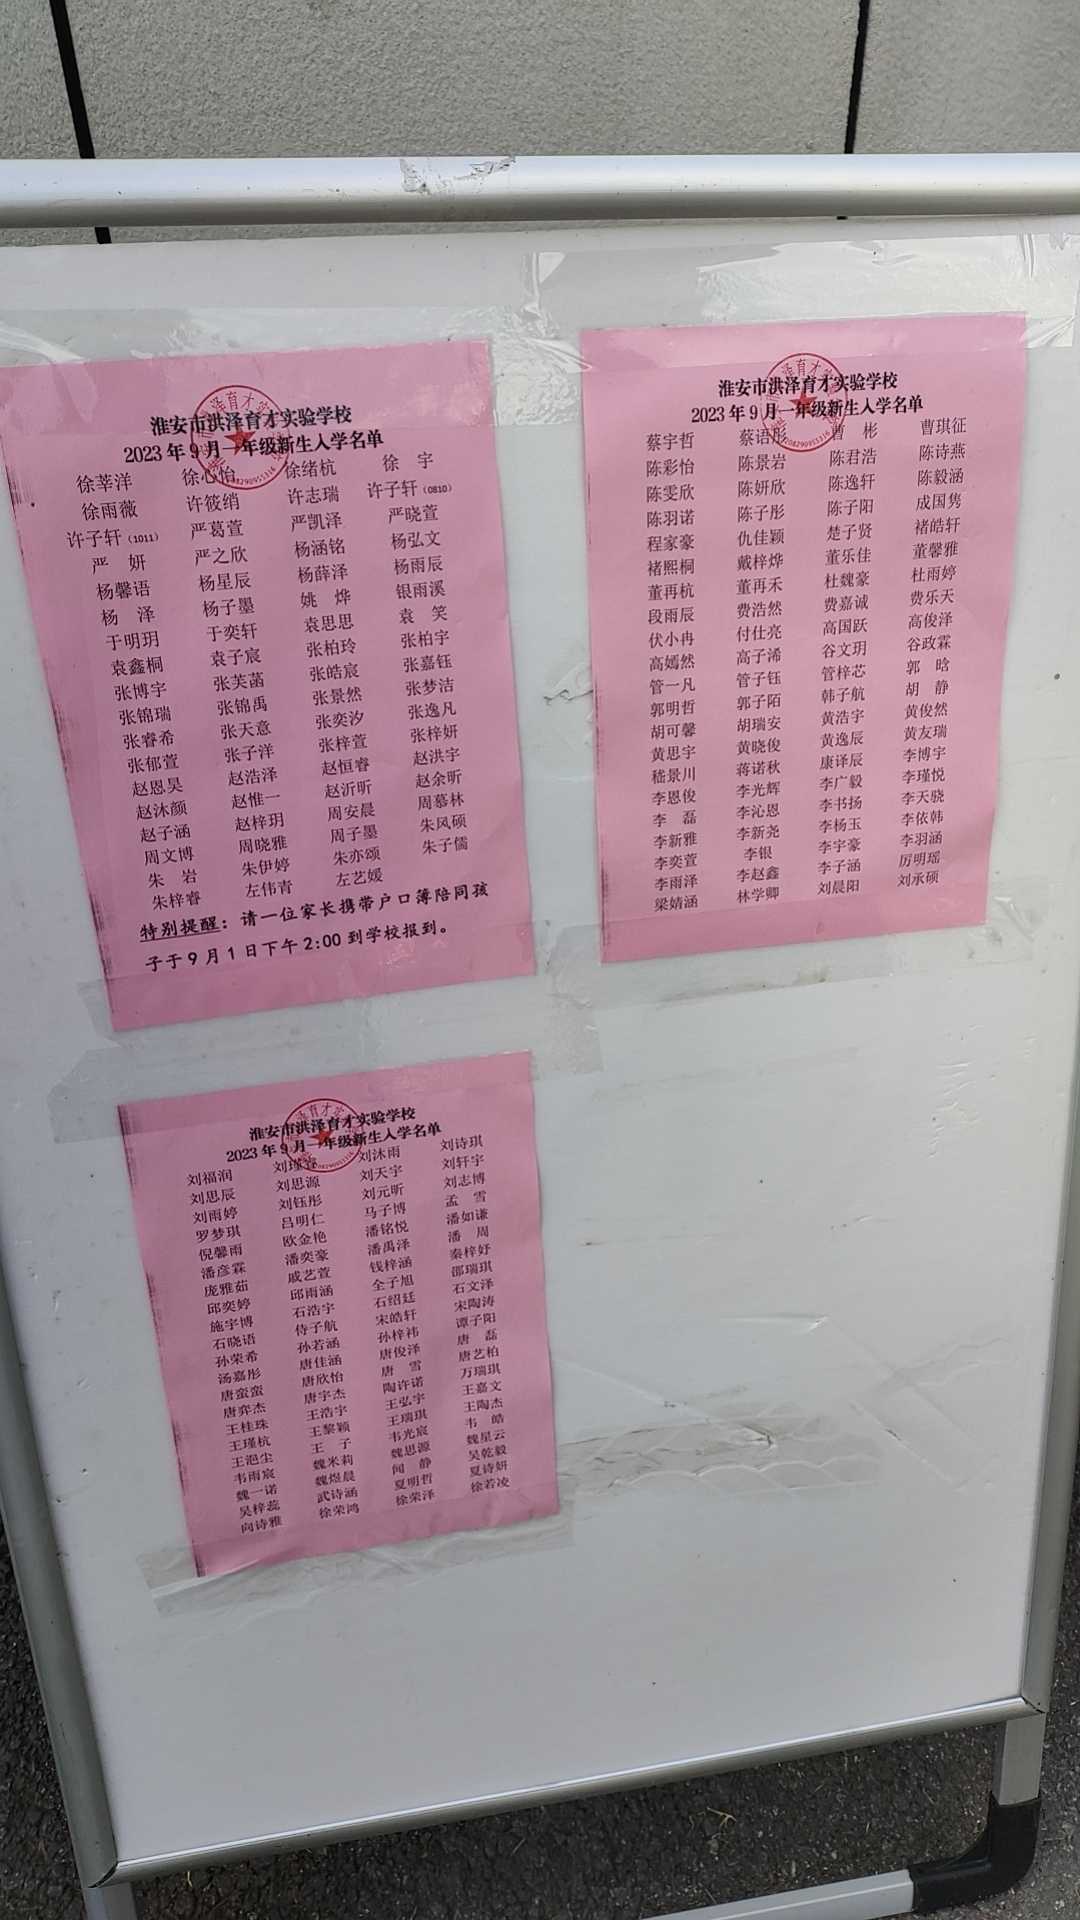 淮安市洪泽育才实验学校
2023年9月一年级新生入学名单
徐莘洋 徐心怡 徐绪杭 徐 宇
徐雨薇 许筱绡 许志瑞 许子轩(0810)
许子轩(1011) 严葛萱 严凯泽 严晓萱
严 妍 严之欣 杨涵铭 杨弘文
杨馨语 杨星辰 杨薛泽 杨雨辰
杨 泽 杨子墨 姚 烨 银雨溪
于明玥 于奕轩 袁思思 袁 笑
袁鑫桐 袁子宸 张柏玲 张柏宇
张博宇 张芙菡 张皓宸 张嘉钰
张锦瑞 张锦禹 张景然 张梦洁
张睿希 张天意 张奕汐 张逸凡
张郁萱 张子洋 张梓萱 张梓妍
赵恩昊 赵浩泽 赵恒睿 赵洪宇
赵沐颜 赵惟一 赵沂昕 赵余昕
赵子涵 赵梓玥 周安晨 周慕林
周文博 周晓雅 周子墨 朱风硕
朱 岩 朱伊婷 朱亦颂 朱子儒
朱梓睿 左伟青 左艺媛
特别提醒：请一位家长携带户口簿陪同孩
子于9月1日下午2:00到学校报到。
淮安市洪泽育才实验学校
2023年9月一年级新生入学名单
蔡宇哲 蔡语彤 曹 彬 曹琪征
陈彩怡 陈景岩 陈君浩 陈诗燕
陈雯欣 陈妍欣 陈逸轩 陈毅涵
陈羽诺 陈子彤 陈子阳 成国隽
程家豪 仇佳颖 楚子贤 褚皓轩
褚熙桐 戴梓烨 董乐佳 董馨雅
董再杭 董再禾 杜魏豪 杜雨婷
段雨辰 费浩然 费嘉诚 费乐天
伏小冉 付仕亮 高国跃 高俊泽
高嫣然 高子浠 谷文玥 谷政霖
管一凡 管子钰 管梓芯 郭 晗
郭明哲 郭子陌 韩子航 胡 静
胡可馨 胡瑞安 黄浩宇 黄俊然
黄思宇 黄晓俊 黄逸辰 黄友瑞
嵇景川 蒋诺秋 康译辰 李博宇
李恩俊 李光辉 李广毅 李瑾悦
李 磊 李沁恩 李书扬 李天骁
李新雅 李新尧 李杨玉 李依韩
李奕萱 李银 李宇豪 李羽涵
李雨泽 李赵鑫 李子涵 厉明瑶
梁婧涵 林学卿 刘晨阳 刘承硕
淮安市洪泽育才实验学校
2023年9月一年级新生入学名单
刘福润 刘瑾睿 刘沐雨 刘诗琪
刘思辰 刘思源 刘天宇 刘轩宇
刘雨婷 刘钰彤 刘元昕 刘志博
罗梦琪 吕明仁 马子博 孟 雪
倪馨雨 欧金艳 潘铭悦 潘如谦
潘彦霖 潘奕豪 潘禹泽 潘 周
庞雅茹 戚艺萱 钱梓涵 秦梓妤
邱奕婷 邱雨涵 全子旭 邵瑞琪
施宇博 石浩宇 石绍廷 石文泽
石晓语 侍子航 宋皓轩 宋陶涛
孙荣希 孙若涵 孙梓祎 谭子阳
汤嘉彤 唐佳涵 唐俊泽 唐 磊
唐蛮蛮 唐欣怡 唐 雪 唐艺柏
唐弈杰 唐宇杰 陶许诺 万瑞琪
王桂珠 王浩宇 王弘宇 王嘉文
王瑾杭 王黎颖 王瑞琪 王陶杰
王浥尘 王 子 韦光宸 韦 皓
韦雨宸 魏米莉 魏思源 魏星云
魏一诺 魏煜晨 闻 静 吴乾毅
吴梓蕊 武诗涵 夏明哲 夏诗妍
向诗雅 徐荣鸿 徐荣泽 徐若凌